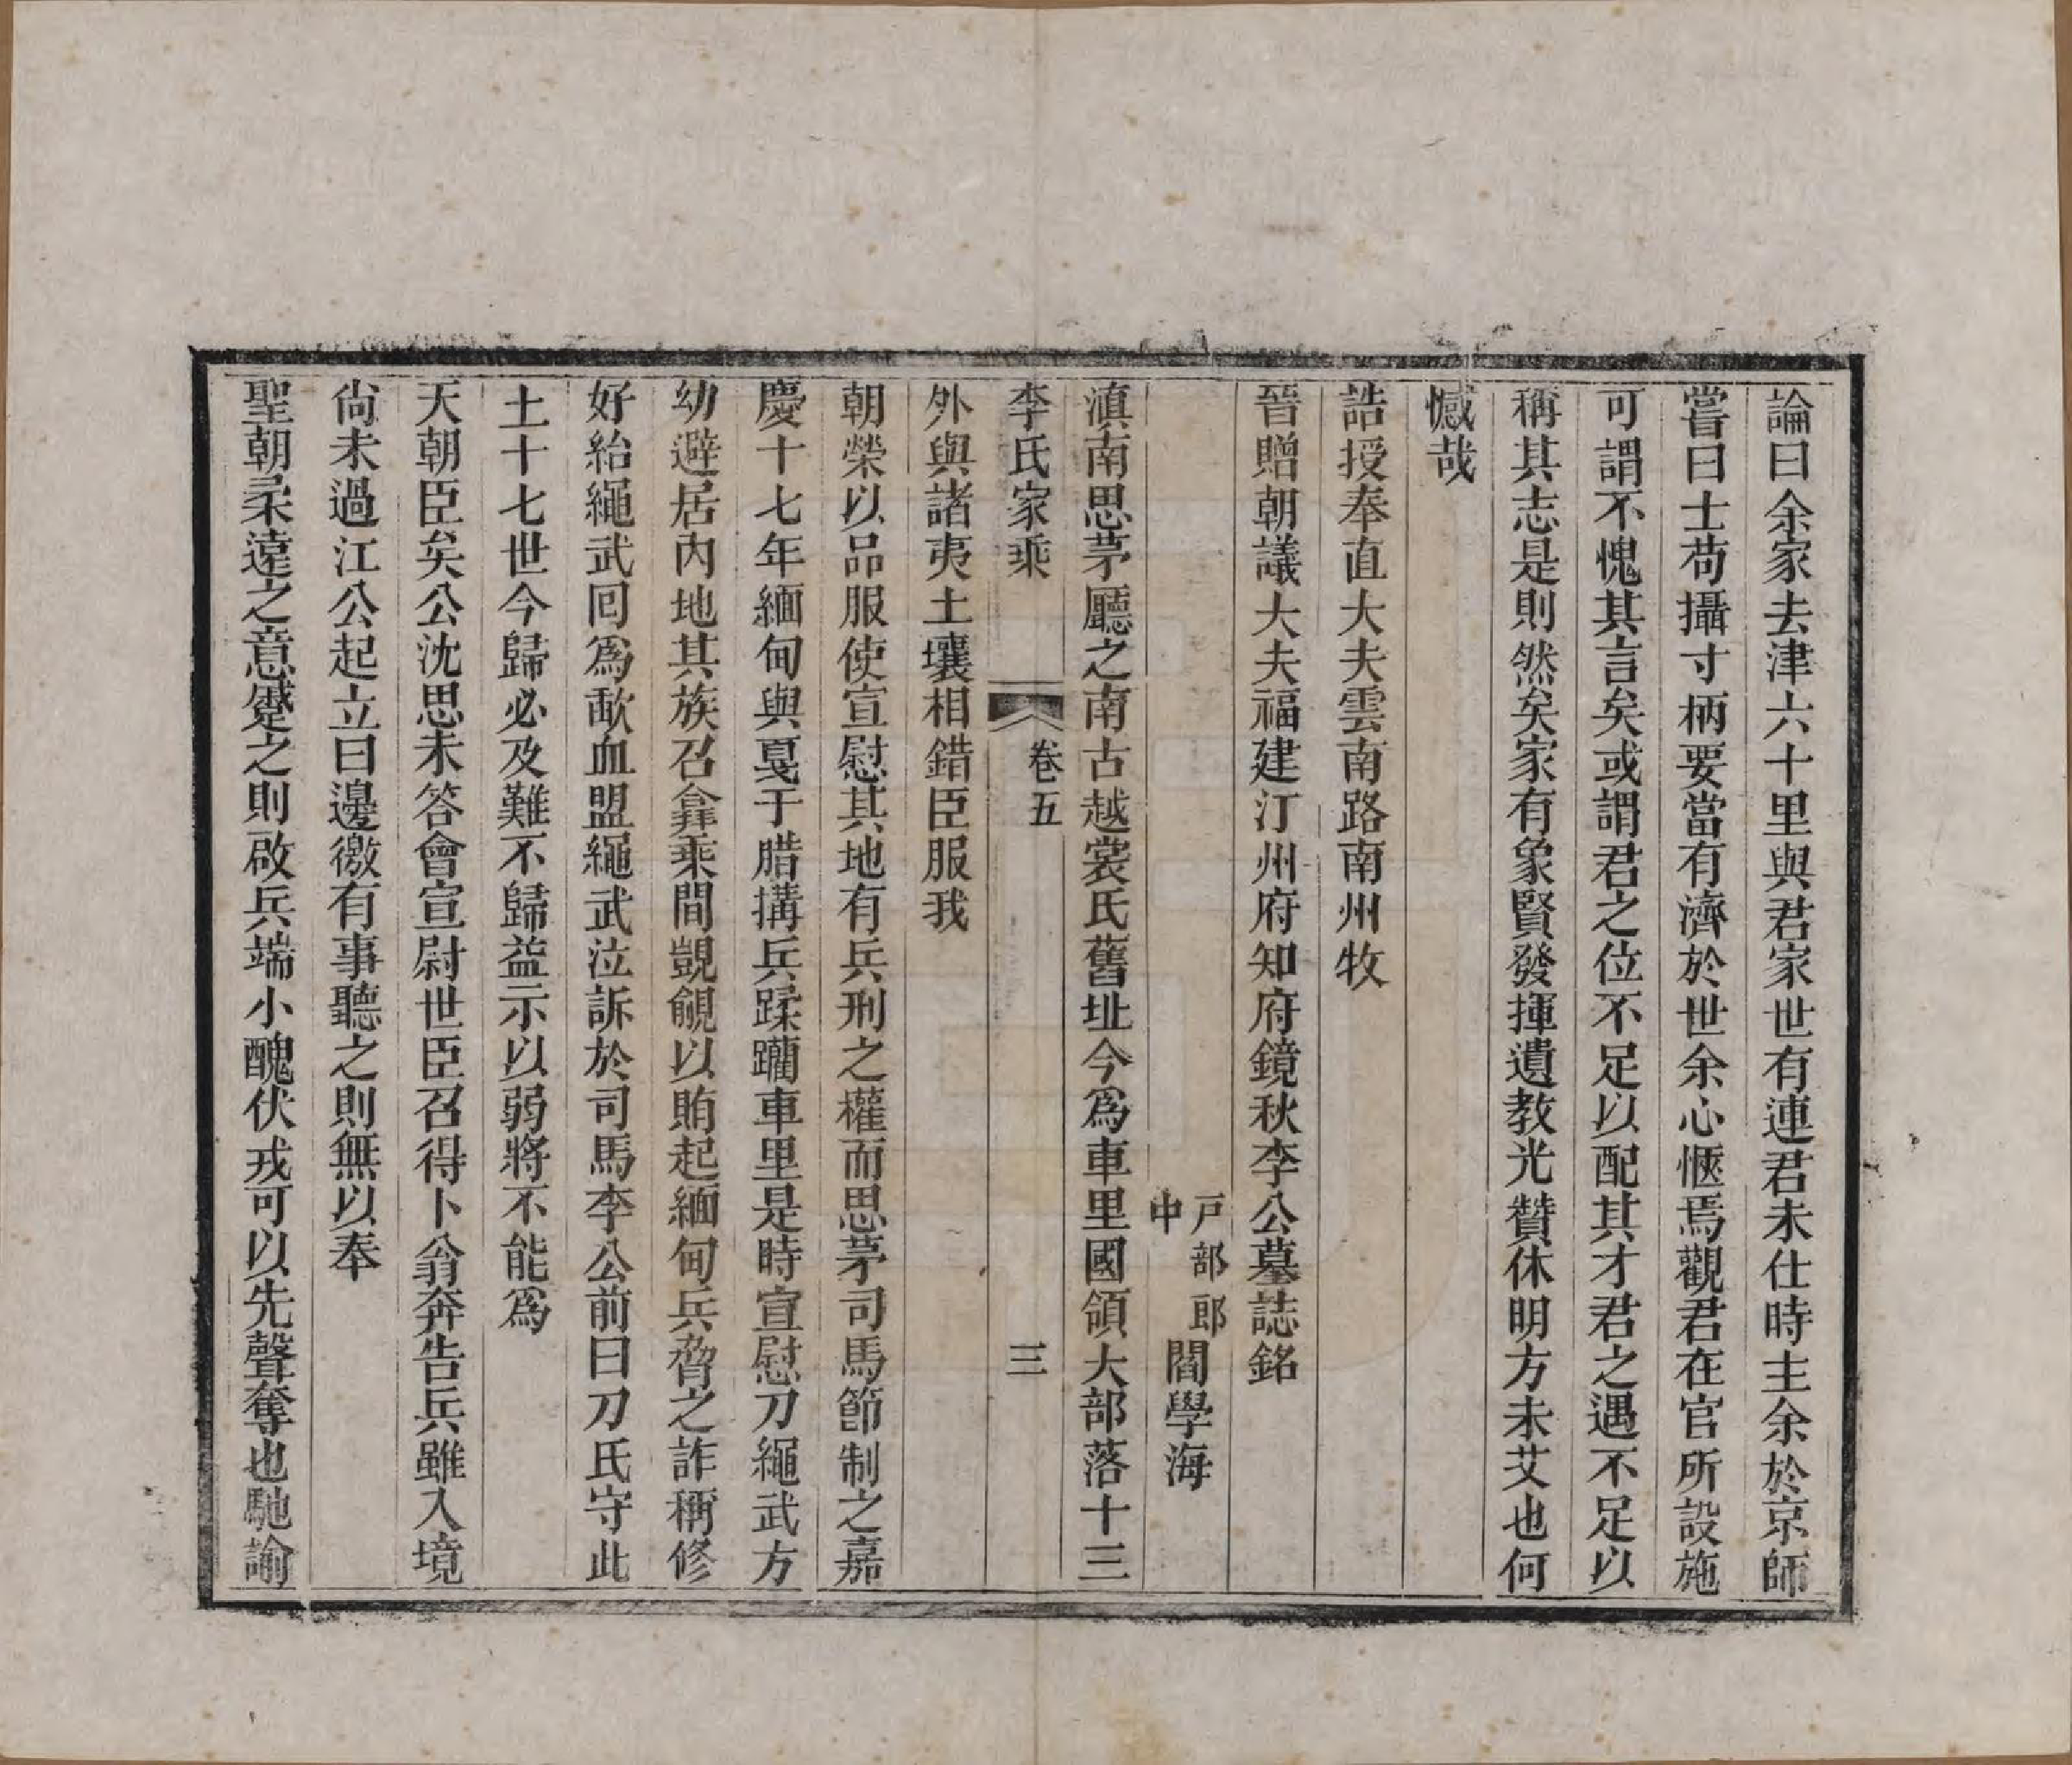 論曰余家去津六十里與君家世有連君未仕時主余於京師
嘗曰士苟攝寸柄要當有濟於世余心愜焉觀君在官所設施
可謂不愧其言矣或謂君之位不足以配其才君之遇不足以
稱其志是則然矣家有象賢發揮遺教光贊休明方未艾也何
憾哉
誥授奉直大夫雲南路南州牧
晉贈朝議大夫福建汀州府知府鏡秋李公墓誌銘
戶部郎中閻學海
滇南思茅廳之南古越裳氏舊址今爲車里國領大部落十三
李氏家乘 卷五 三
外與諸夷土壤相錯臣服我
朝榮以品服使宣慰其地有兵刑之權而思茅司馬節制之嘉
慶十七年緬甸與戛于腊搆兵蹂躪車里是時宣慰刀繩武方
幼避居內地其族召彛乘間覬覦以賄起緬甸兵脅之詐稱修
好紿繩武囘爲歃血盟繩武泣訴於司馬李公前曰刀氏守此
土十七世今歸必及難不歸益示以弱將不能爲
天朝臣矣公沈思未答會宣尉世臣召得卜翁奔告兵雖入境
尙未過江公起立曰邊徼有事聽之則無以奉
聖朝柔遠之意蹙之則啟兵端小醜伏戎可以先聲奪也馳諭